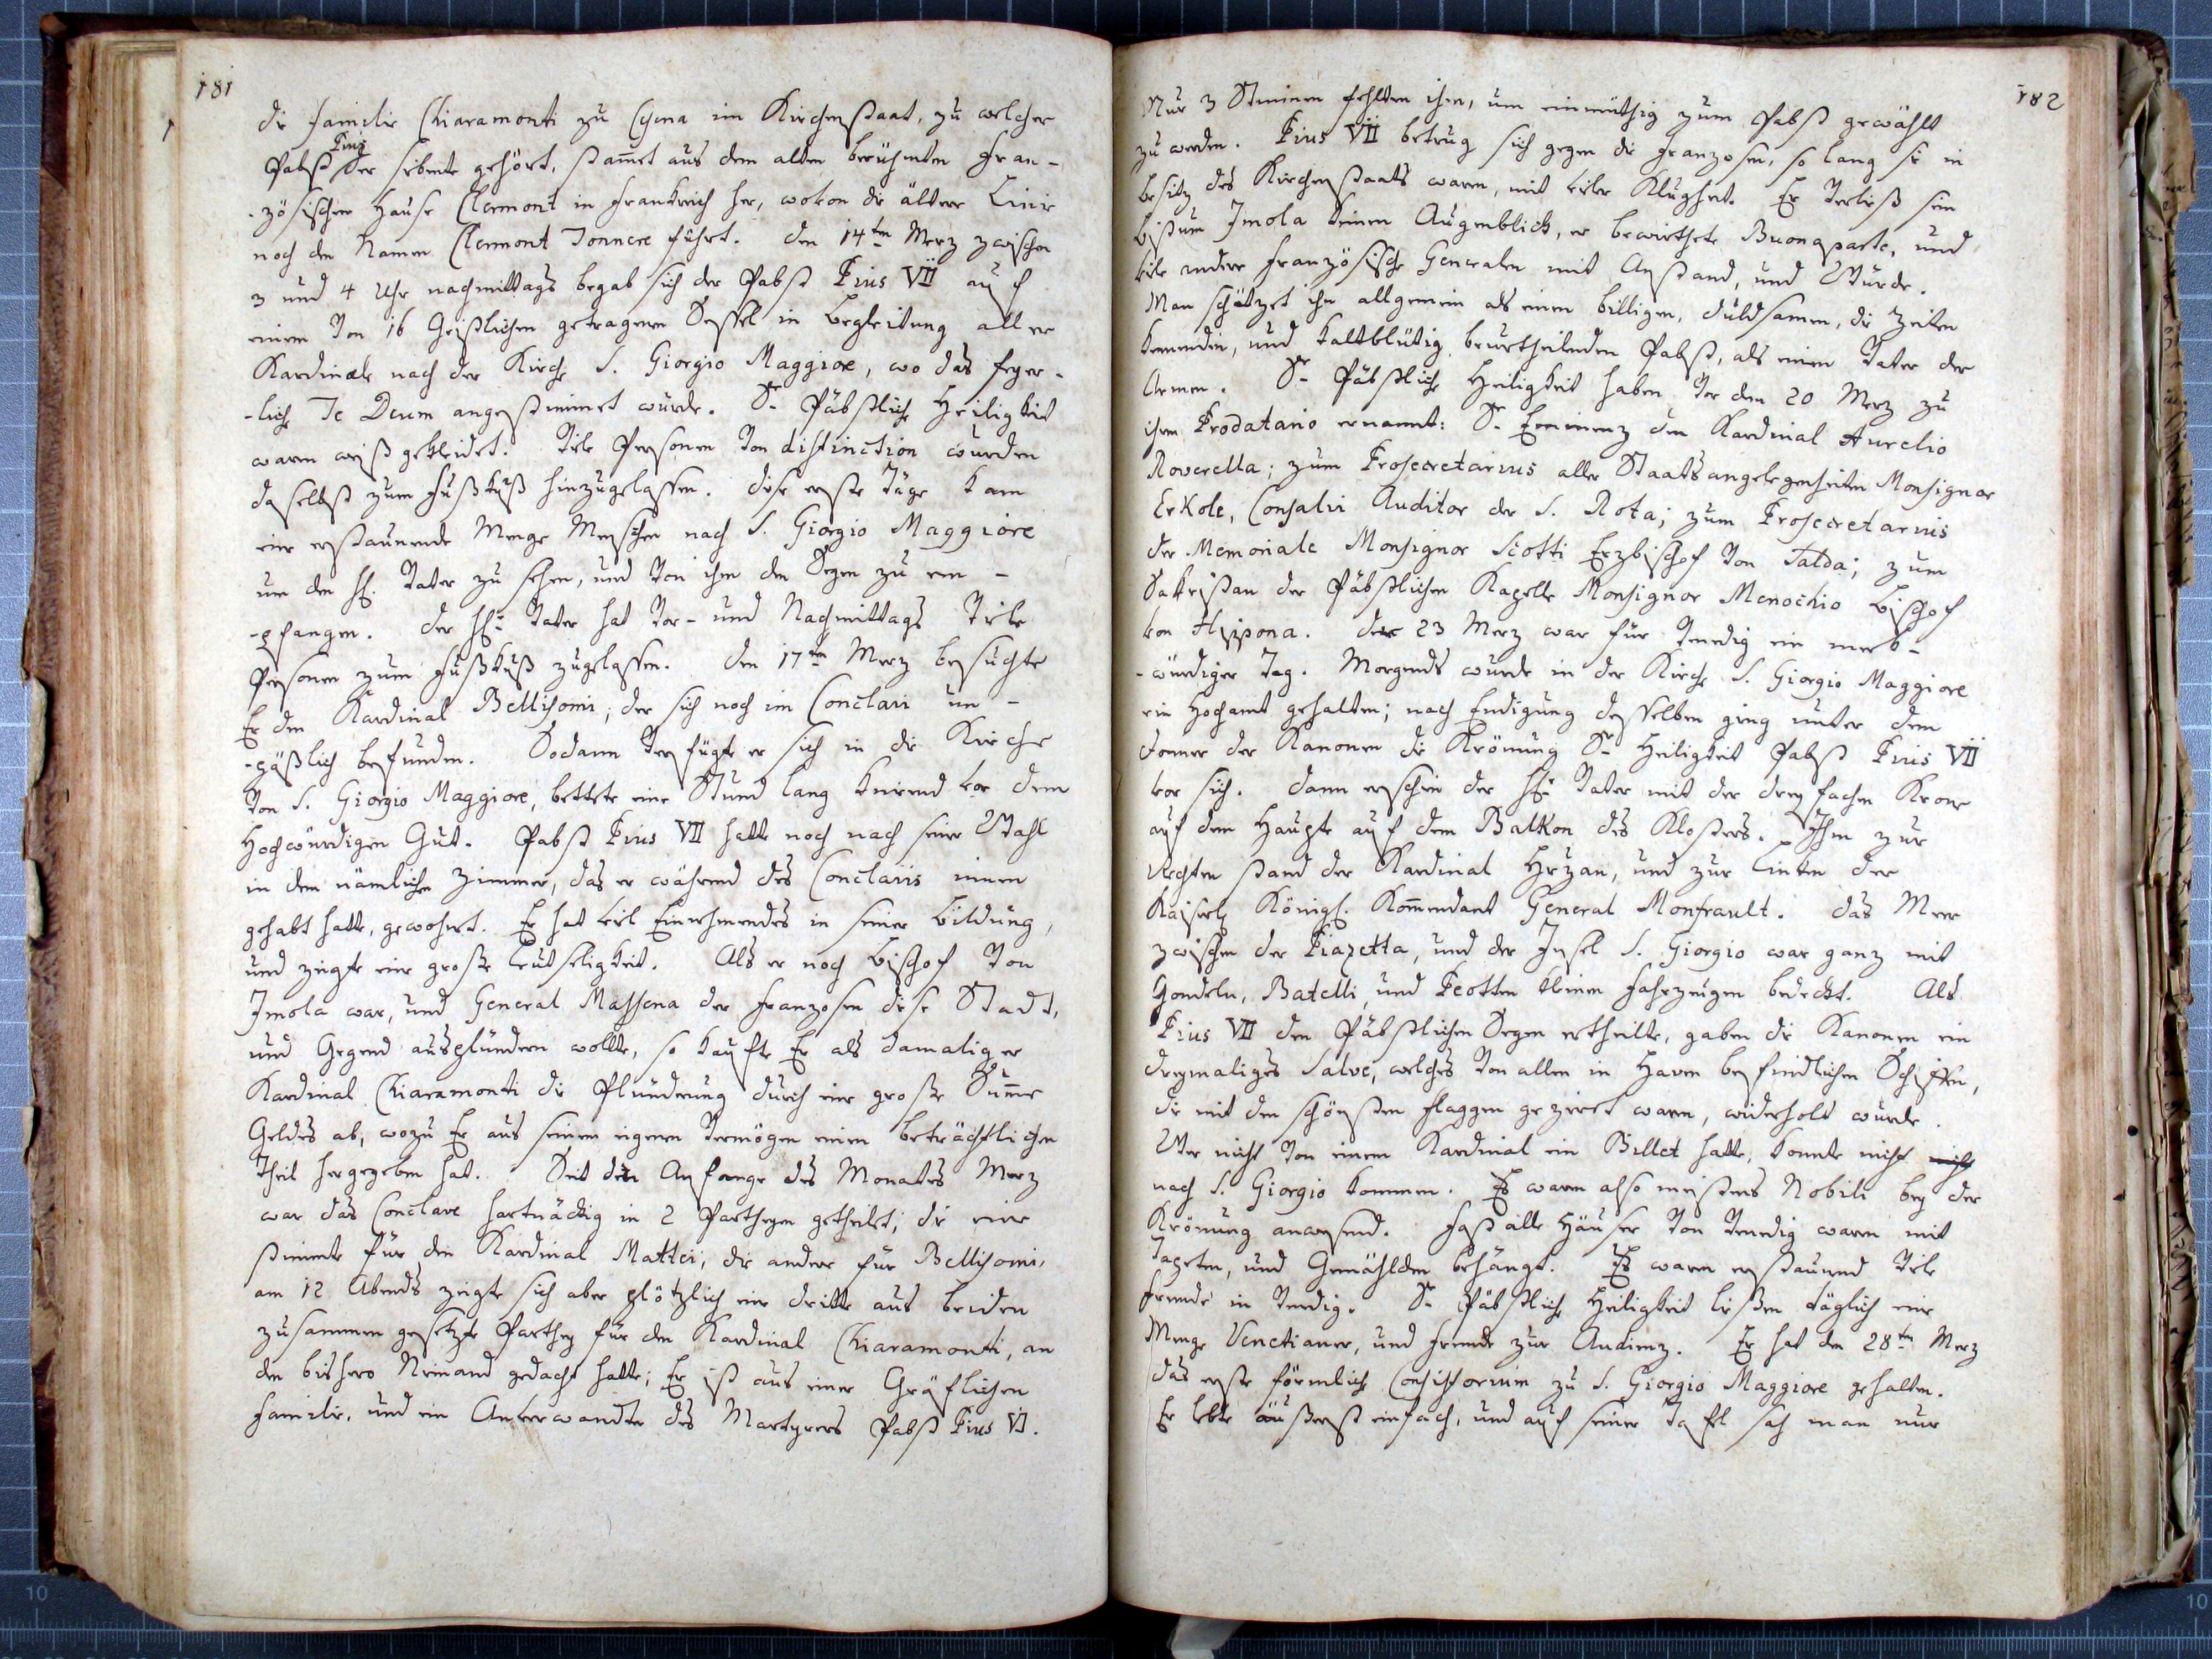 181
die Familie Chiaramonti zu Cesena im Kirchenstaat, zu welcher
Pius
Pabst der sibente gehört, stam̅et aus dem alten berühmten Fran-
-zösischen Hause Clermont in Frankreich her, wovon die ältere Linie
noch den Namen Clermont Tonnere führt. Den 14ten Merz zwischen
3 und 4 Uhr nachmittags begab sich der Pabst Pius VII auf
einem von 16 Geistlichen getragenen Sessel in Begleitung aller
Kardinäle nach der Kirche S. Giorgio Maggiore, wo das feyer-
-liche Te Deum angestimmet wurde. Sr Päbstliche Heiligkeit
waren weiß gekleidet. Viele Personen von distinction wurden
daselbst zum Fußkuß hinzugelassen. Diese erste Täge kam
eine erstaunende Menge Menschen nach S. Giorgio Maggiore
um den Hl. Vater zu sehen, und von ihm den Segen zu em-
-pfangen. Der Hl: Vater hat Vor- und Nachmittags Viele
Personen zum Fußkuß zugelassen. Den 17ten Merz besuchte
Er den Kardinal Bellisomi, der sich noch im Conclavi un-
-päßlich befunden. Sodann verfügte er sich in die Kirche
von S. Giorgio Maggiore, bettete eine Stund lang knieend vor dem
Hochwürdigen Gut. Pabst Pius VII hatte noch nach seiner Wahl
in dem nämlichen Zimmer, das er während des Conclavis innen
gehabt hatte, gewohnt. Er hat viel Einnehmendes in seiner Bildung,
und zeigte eine große Leutseligkeit. Als er noch Bischof von
Imola war, und General Massena der Franzosen diese Stadt,
und Gegend ausplündern wollte, so kaufte Er als damaliger
Kardinal Chiaramonti die Plünderung durch eine große Sum̅e
Geldes ab, wozu Er aus seinem eigenen Vermögen einen beträchtlichen
Theil hergegeben hat. Seit dem Anfange des Monates Merz
war das Conclave hartnäckig in 2 Partheyen getheilet; die eine
stimmte für den Kardinal Mattei, die andere für Bellisomi,
am 12 Abends zeigte sich aber plötzlich eine dritte aus beiden
zusammen gesetzte Parthey für den Kardinal Chiaramonti, an
den bishero Niemand gedacht hatte; Er ist aus einer Gräflichen
Familie, und ein Anverwandter des Martyrers Pabst Pius VI.
182
Nur 3 Stimmen fehlten ihm, um einmüthig zum Pabst gewählt
zu werden. Pius VII betrug sich gegen die Franzosen, so lang sie in
Besitz des Kirchenstaats waren, mit vieler Klugheit. Er verließ sein
Bistum Imola keinen Augenblick, er bewirthete Buonaparte, und
viele andere Französische Generalen mit Anstand, und Würde.
Man schätzet ihn allgemein als einen billigen, duldsamen, die Zeiten
kennenden, und kaltblütig beurtheilenden Pabst, als einen Vater der
Armen. Sr Päbstliche Heiligkeit haben vor dem 20 Merz zu
ihrem Prodatario ernannt: Sr Eminenz den Kardinal Aurelio
Roverella; zum Prosecretarius aller Staatsangelegenheiten Monsignor
Erkole, Consalvi Auditor der S. Rota; zum Prosecretarius
der Memoriale Monsignor Scotti Erzbischof von Talda; zum
Sakristan der Päbstlichen Kapelle Monsignor Menochio Bischof
von Hippona. Der 23 Merz war für Venedig ein merk-
-würdiger Tag. Morgends wurde in der Kirche S. Giorgio Maggiore
ein Hochamt gehalten; nach Endigung desselben ging unter dem
Donner der Kanonen die Krönung Sr Heiligkeit Pabst Pius VII
vor sich. Dann erschien der Hl: Vater mit der dreyfachen Krone
auf dem Haupte auf dem Balkon des Klosters. Ihm zur
Rechten stand der Kardinal Hrzan, und zur Linken der
Kaiserl. Königl. Kom̅endant General Monfrault. Das Meer
zwischen der Piazetta, und der Insel S. Giorgio war ganz mit
Gondeln, Batelli, und Peotten kleinen Fahrzeugen bedeckt. Als
Pius VII den Päbstlichen Segen ertheilte, gaben die Kanonen ein
dreymaliges Salve, welches von allen in Haven befindlichen Schiffen,
die mit den schönsten Flaggen gezieret waren, widerholt wurde.
Wer nicht von einem Kardinal ein Billet hatte, konnte nicht
nach S. Giorgio kommen. Es waren also meistens Nobili bey der
Krönung anwesend. Fast alle Häuser von Venedig waren mit
Tapeten, und Gemählden behängt. Es waren erstaunend Viele
Fremde in Venedig. Sr Päbstliche Heiligkeit ließen täglich eine
Menge Venetianer, und Fremde zur Audienz. Er hat den 28ten Merz
das erste förmliche Consistorium zu S. Giorgio Maggiore gehalten.
Er lebte äußerst einfach, und auf seiner Tafel sah man nur